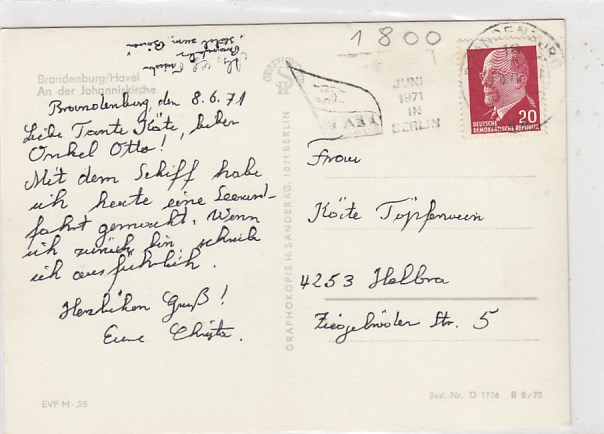 1800
Brandenburg/Havel
An der Johanniskirche
Brandenburg, den 8.6.71
Liebe Tante Käte, lieber
Onkel Otto!
Mit dem Schiff habe
ich heute eine Seerund-
fahrt gemacht. Wenn
ich zurück bin, schreibe
ich ausführlich.
Herzlichen Gruß!
Eure Christa.
GRAPHOKOPIE H. SANDER KG. 1071 BERLIN
JUNI
1971
IN
BERLIN
BRANDENBURG
20
DEUTSCHE
DEMOKRATISCHE REPUBLIK
Frau
Käte Töpferwein
4253 Helbra
Ziegelröder Str. 5
EVP M -,25
Best.-Nr. D 1736 B 8/70